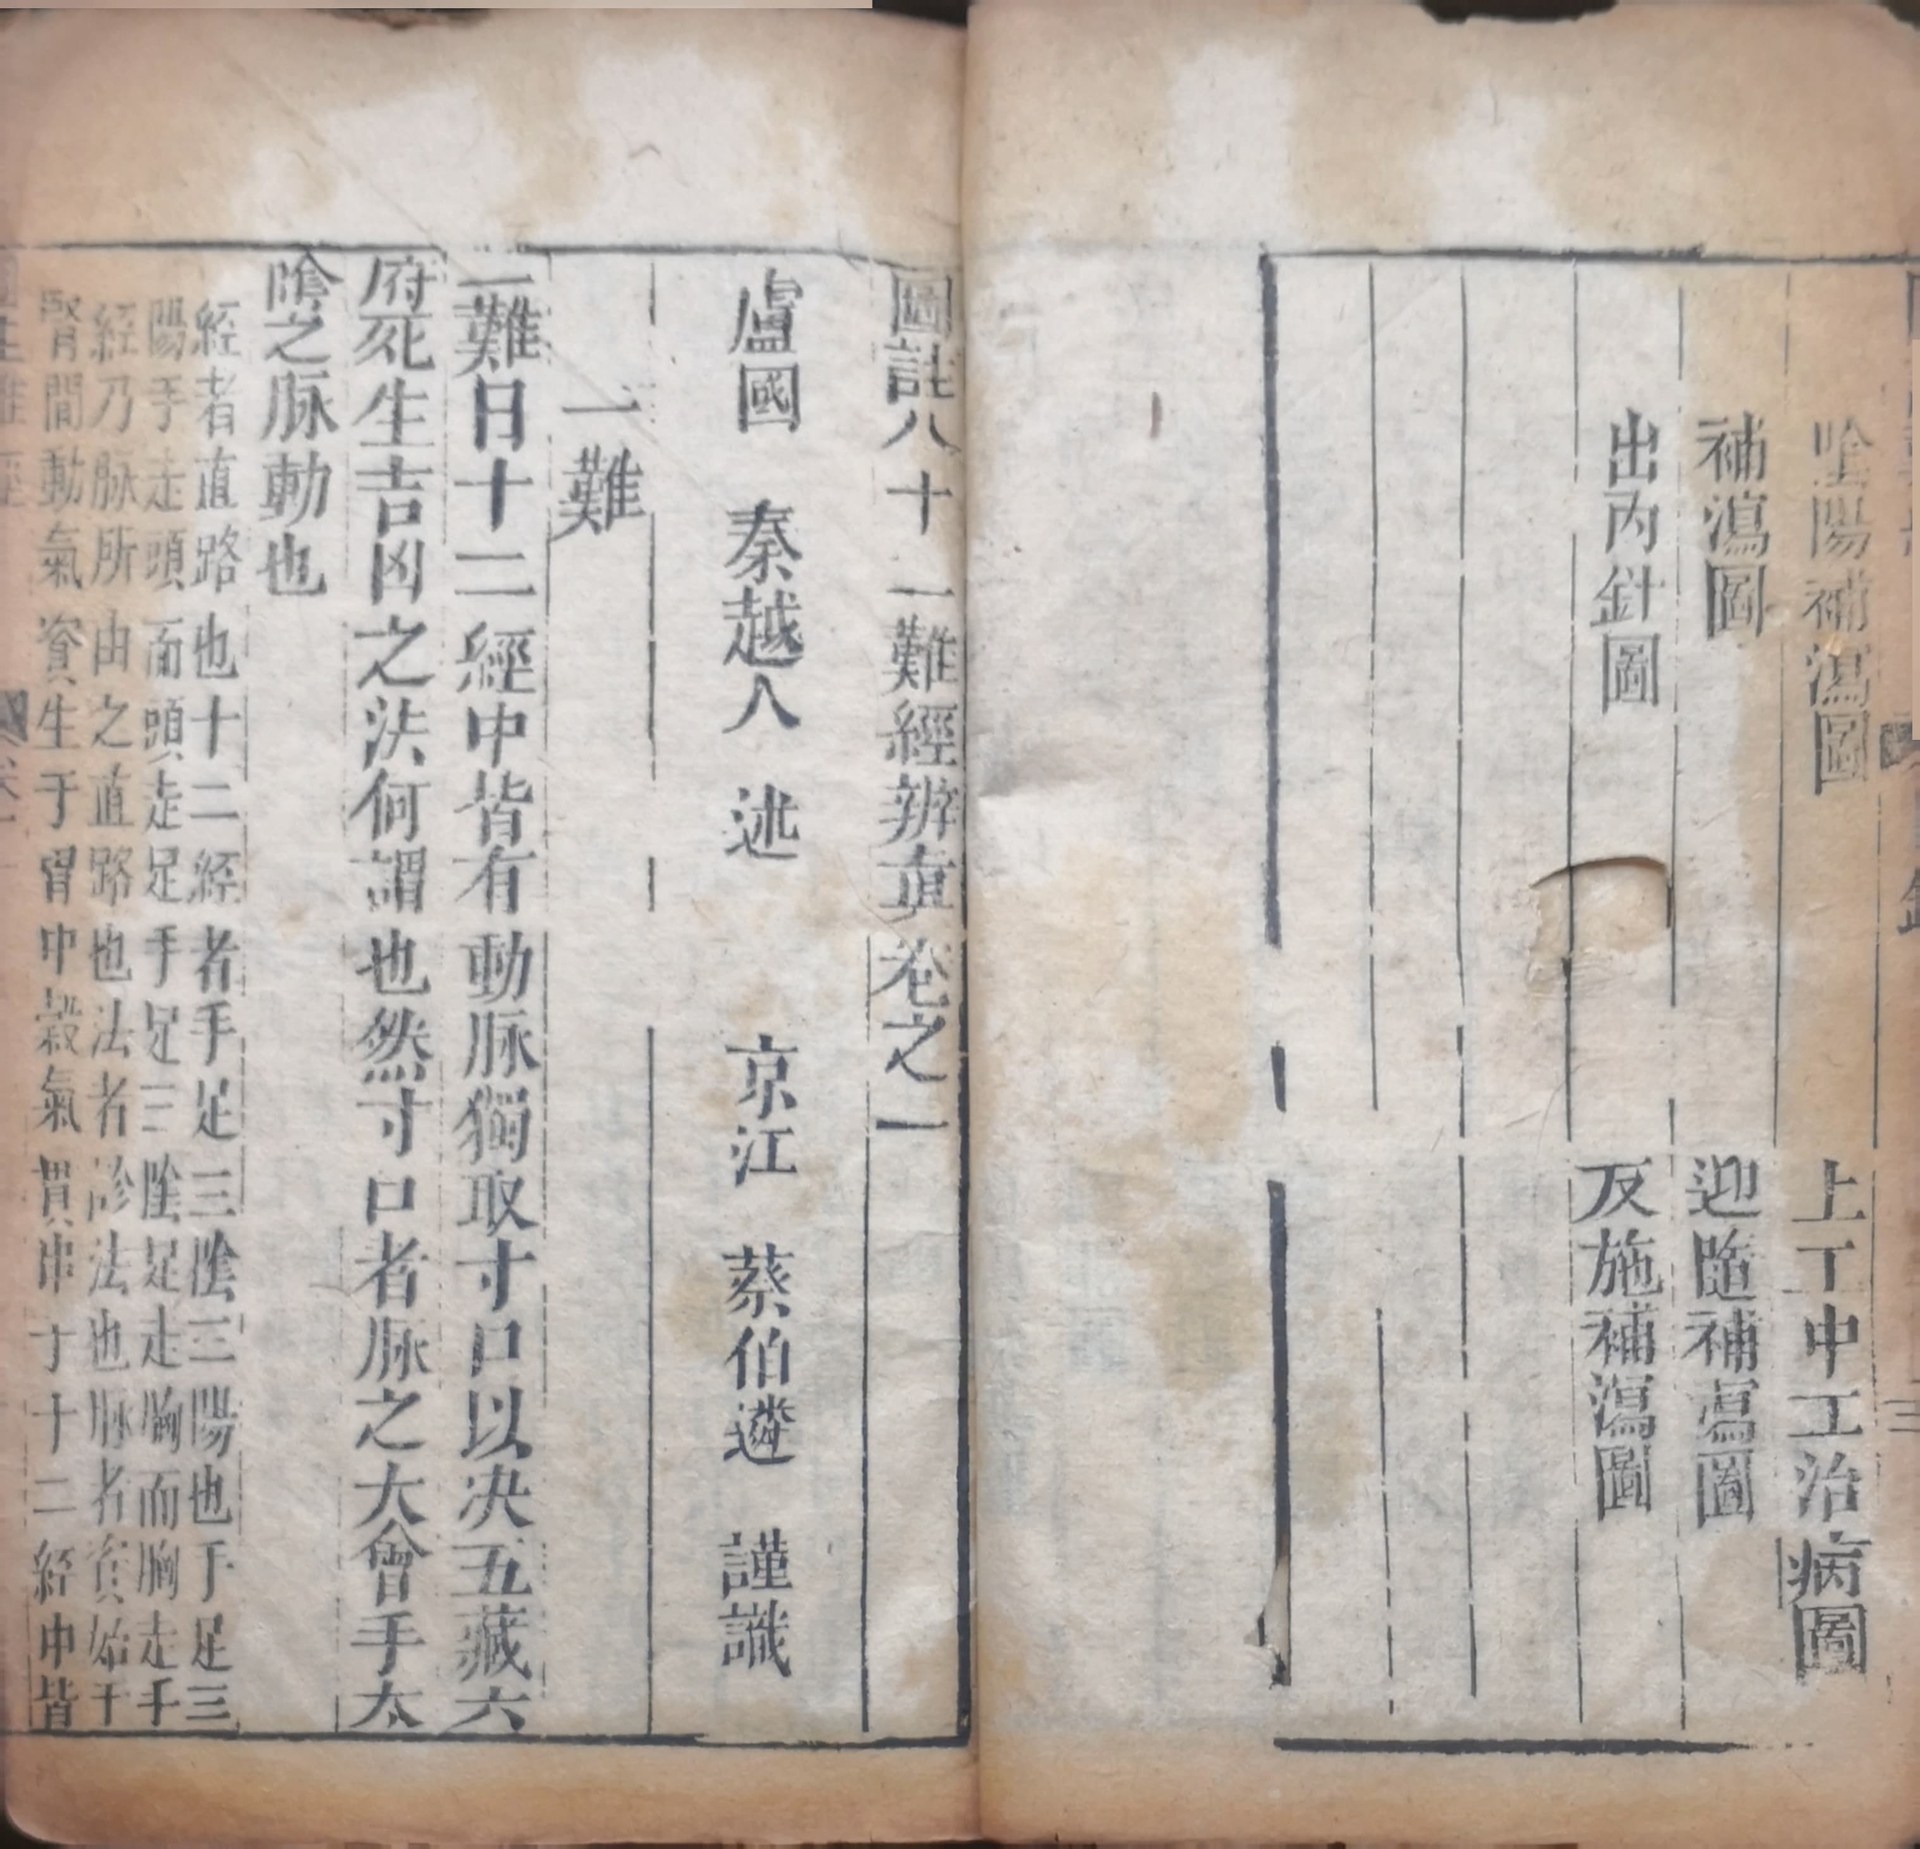 陰陽補瀉圖　上工中工治病圖
補瀉圖　迎隨補瀉圖
出內針圖　反施補瀉圖
圖註八十一難經辨真卷之一
盧國　秦越人　述　京江　蔡伯遴　謹識
一難
一難曰十二經中皆有動脉獨取寸口以决五藏六
府死生吉凶之法何謂也然寸口者脉之大會手太
陰之脉動也
經者直路也十二經者手足三陰三陽也手足三
陽手走頭而頭走足手足三陰足走胸而胸走手
經乃脉所由之直路也法者診法也脉者資始于
腎間動氣資生于胃中穀氣貫串于十二經中皆